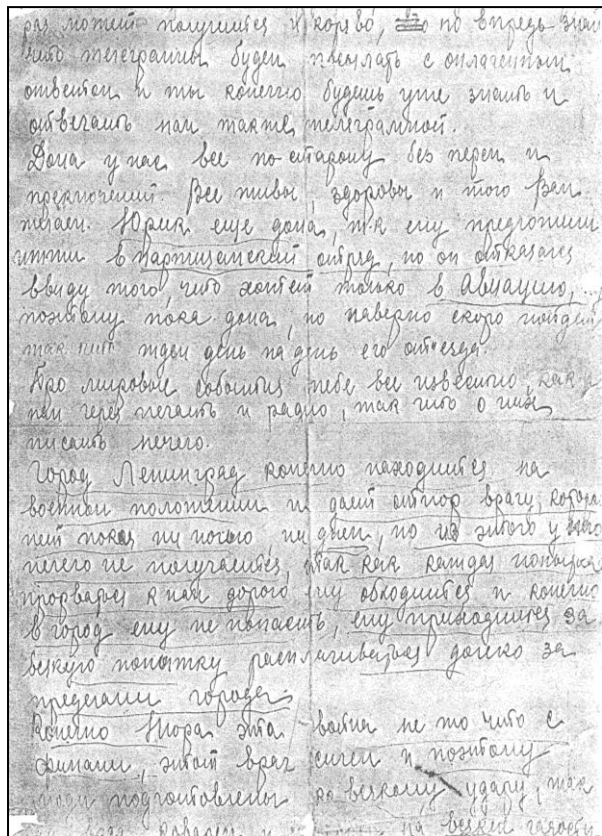 раз может получится и коряво, но впредь знай
что телеграммы будем посылать с оплаченным
ответом и ты конечно будешь уже знать и
отвечать нам также телеграммой.
Дома у нас все по старому без перемен и
приключений. Все живы, здоровы и того Вам
желаем. Юрик еще дома, т.к ему предложили
итти в партизанский отряд, но он отказался
ввиду того что хотел только в Авиацию,
поэтому пока дома, но наверно скоро пойдет
так что ждем день на день его отъезда.
Про мировые события тебе все известно, как и
нам через печать и радио, так что о них
писать нечего.
Город Ленинград конечно находится на
военном положении и дает отпор врагу, котор
нет покоя ни ночью, ни днем, но из этого у него
нечего не получается, так как каждая попытка
прорваться к нам дорого ему обходится и конечно
в город ему не попасть, ему приходится за
всякую попытку расплачиваться далеко за
пределами города.
Конечно Нюра эта война не то что с
финнами, этот враг силен и поэтому
люди подготовлены ко всякому удару, так
на всякие